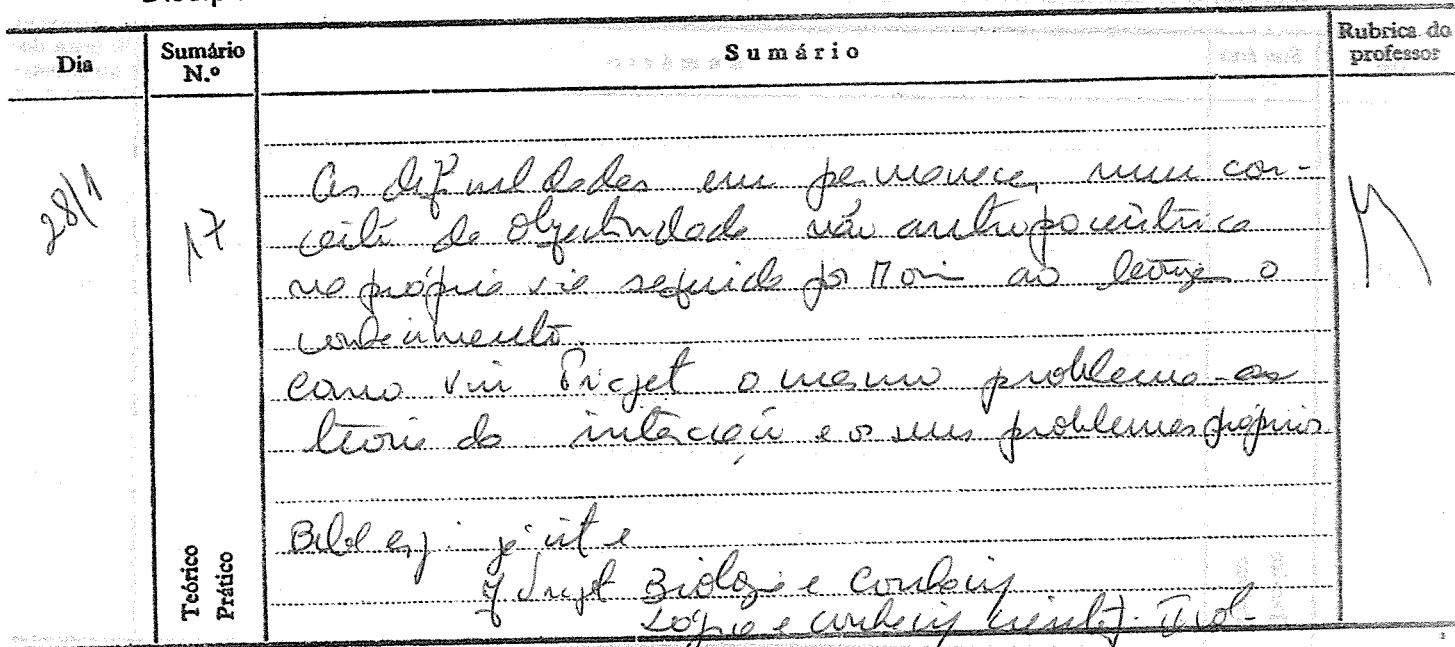 Dia
Sumário N.º
Sumário
Rubrica do professor
28/1
17
As dificuldades em permanecer num con-
ceito de objectividade não antropocêntrica
na própria via seguida por Morin ao
conhecimento.
Como viu Piaget o mesmo problema - as
teoria da interacção e os seus problemas próprios
Teórico
Prático
Bibl
J. Piaget Biologia e Conhecim
Lógica e conhecim cientif. II vol-